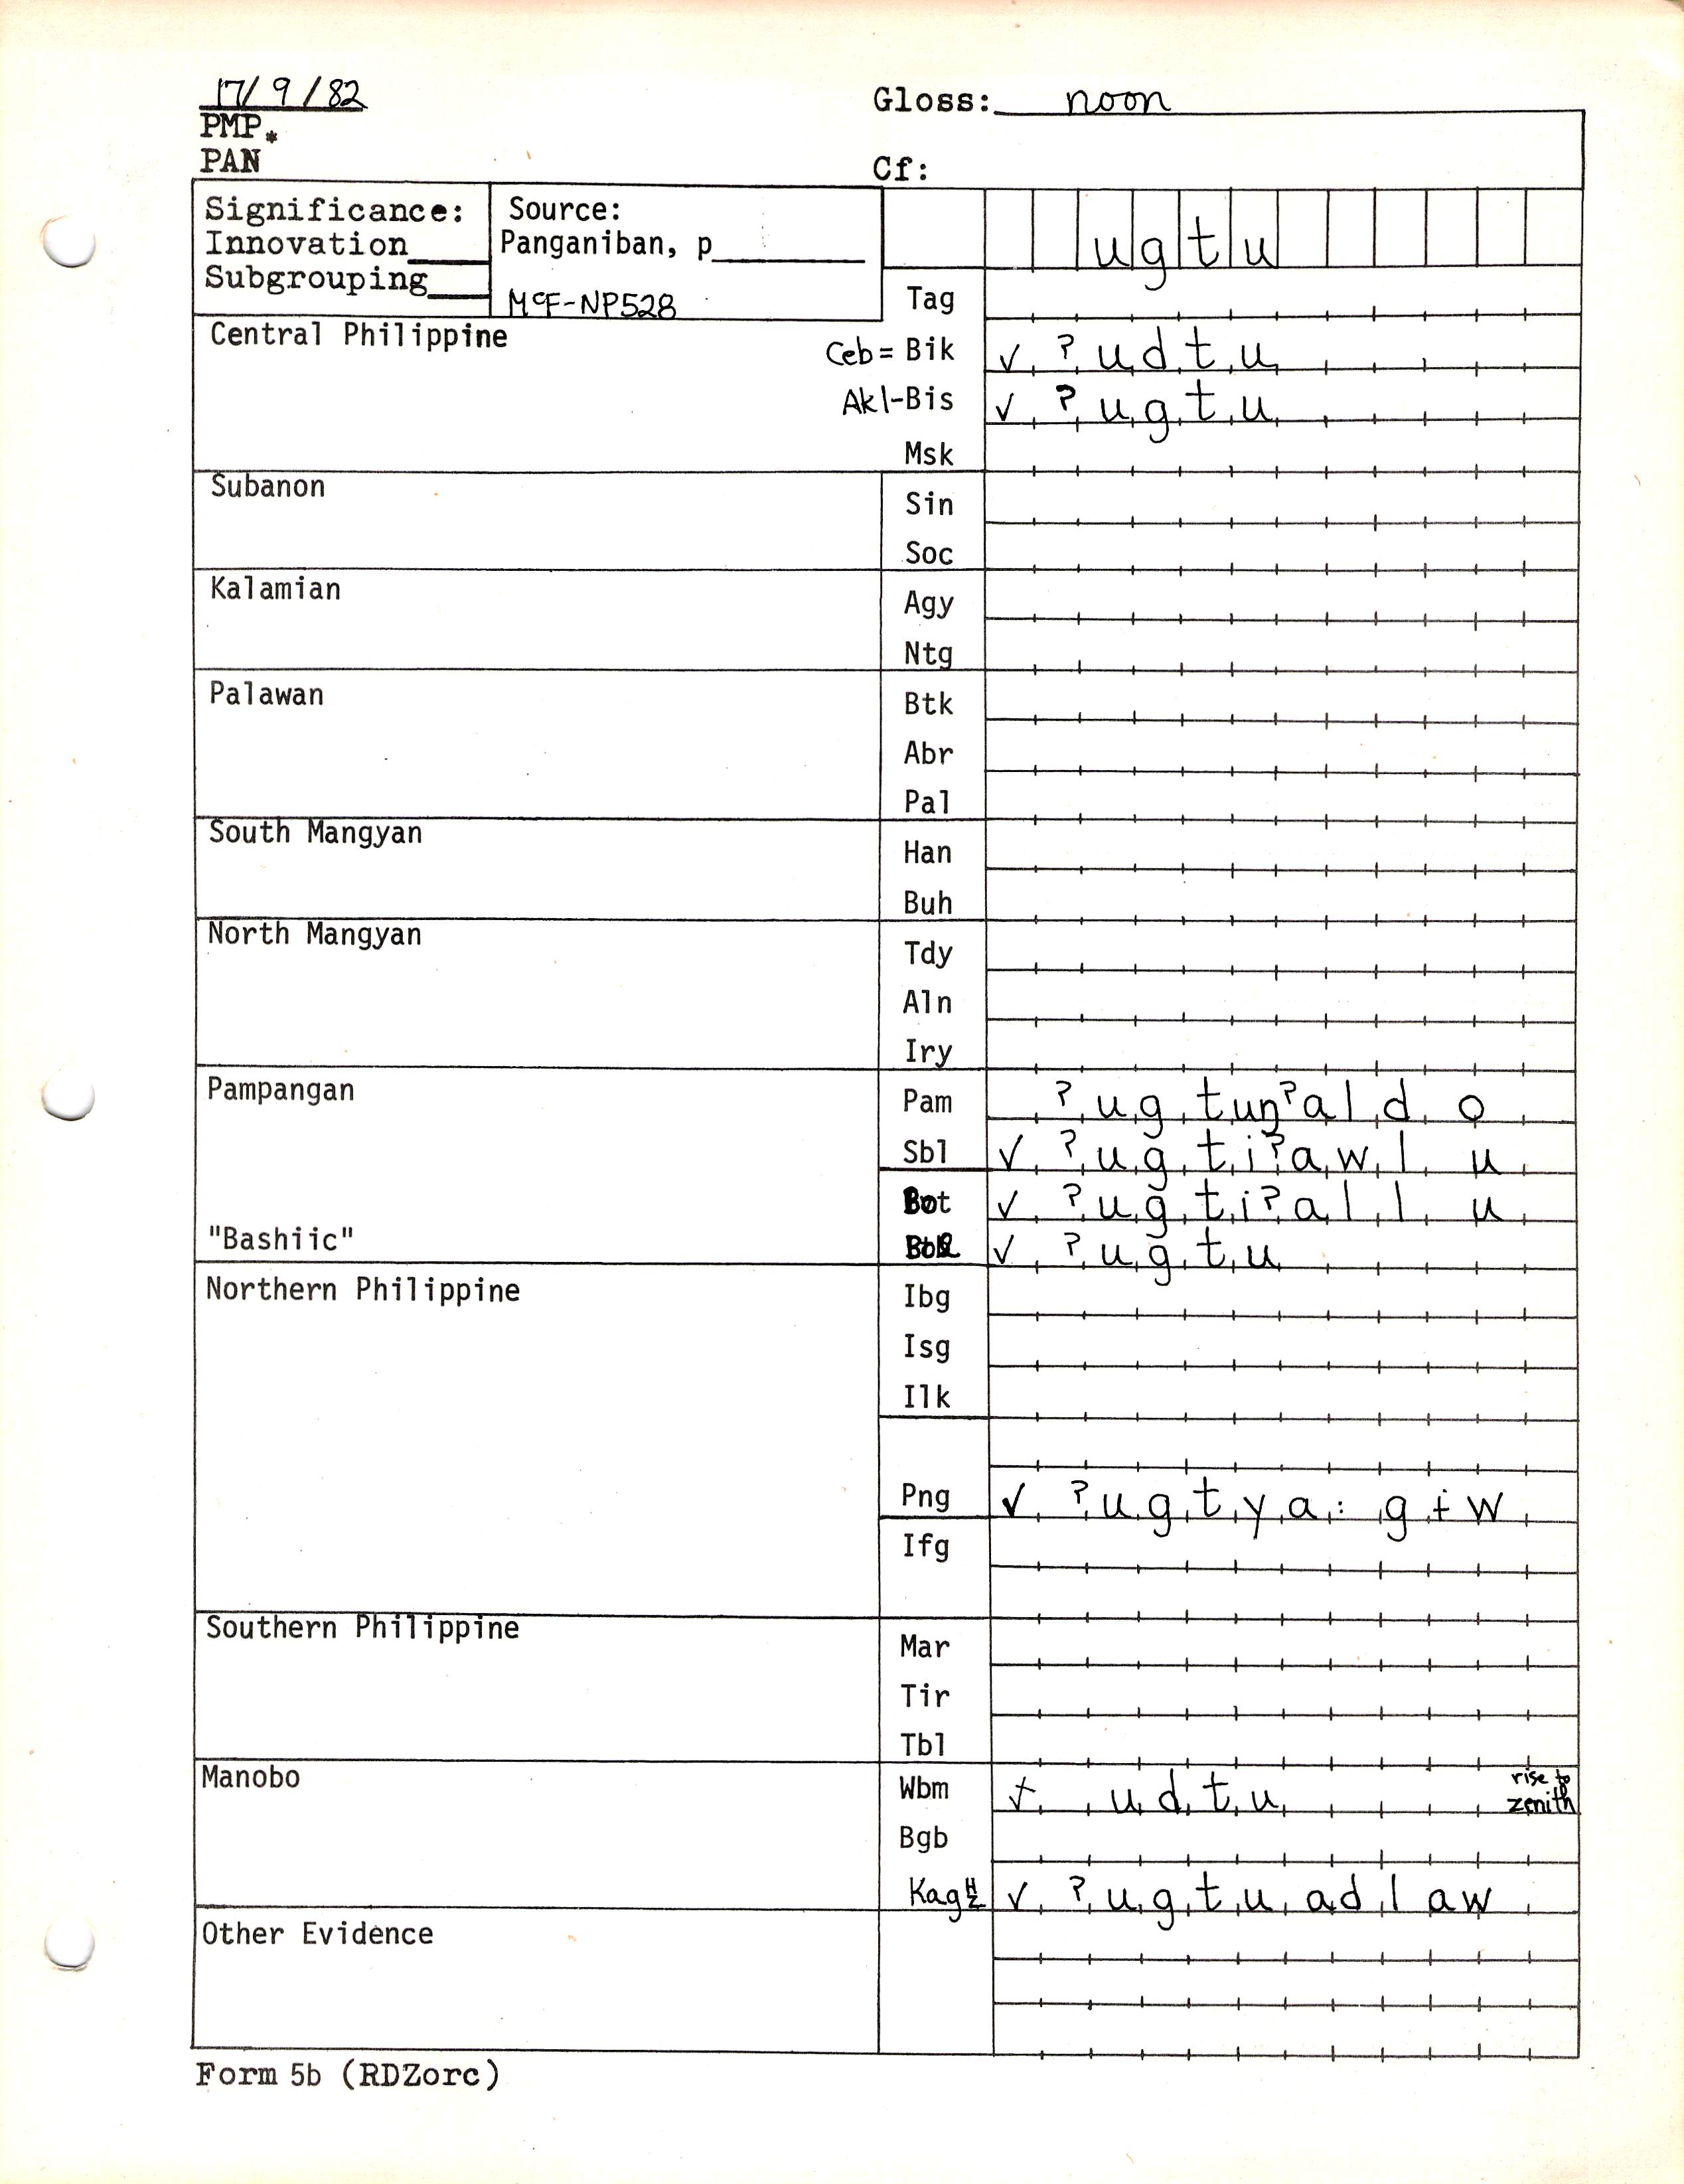 17/9/82
Gloss: noon
PMP*
PAN
Cf:
Significance:
Innovation____
Subgrouping____
Source:
Panganiban, p________
McF-NP528
ugtu
Tag
Central Philippine
Ceb = Bik ✓ ʔudtu
Akl-Bis ✓ ʔugtu
Msk
Subanon
Sin
Soc
Kalamian
Agy
Ntg
Palawan
Btk
Abr
Pal
South Mangyan
Han
Buh
North Mangyan
Tdy
Aln
Iry
Pampangan
Pam ʔugtuŋʔaldo
Sbl ✓ ʔugtiʔawlu
Bot ✓ ʔugtiʔallu
"Bashiic"
✓ ʔugtu
Northern Philippine
Ibg
Isg
Ilk
Png ✓ ʔugtya:gɨw
Ifg
Southern Philippine
Mar
Tir
Tbl
Manobo
Wbm udtu rise to zenith
Bgb
Kag ✓ ʔugtu adlaw
Other Evidence
Form 5b (RDZorc)